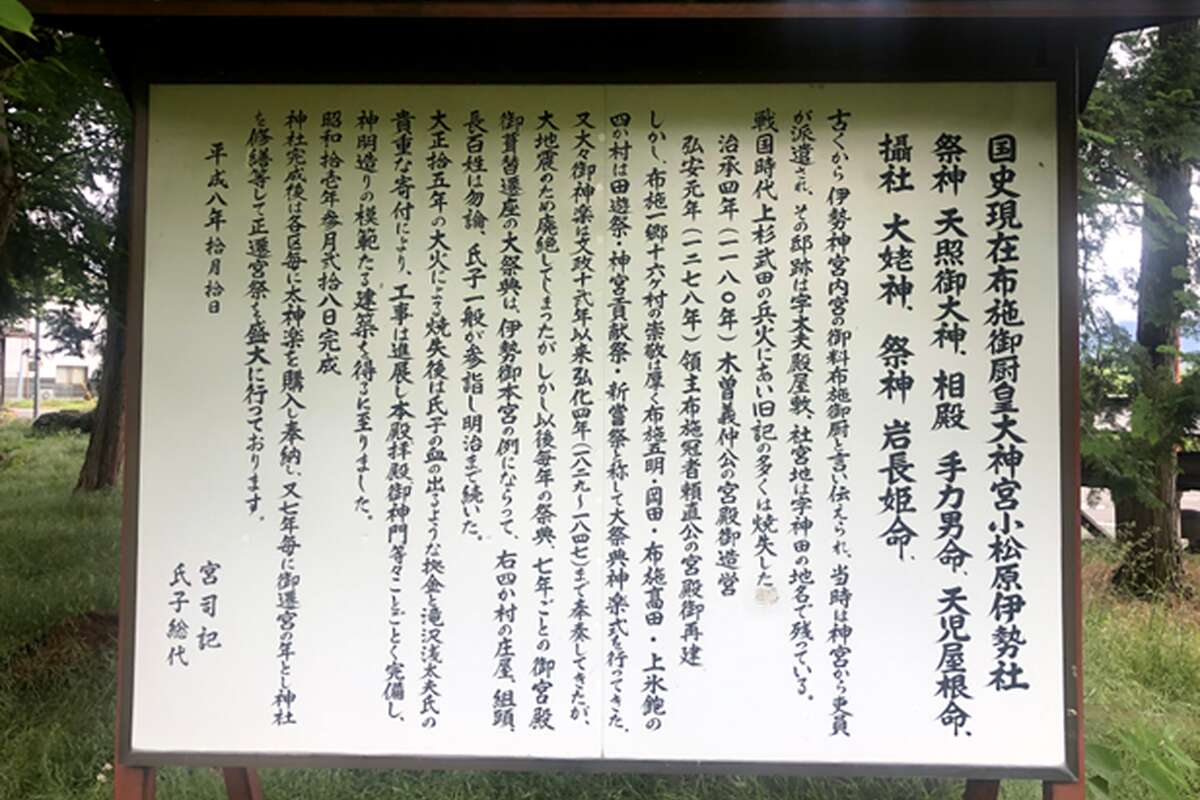 国史現在布施御厨皇大神宮小松原伊勢社
祭神 天照御大神、相殿 手力男命、天児屋根命、
攝社 大姥神、祭神 岩長姫命、
古くから伊勢神宮内宮の御料布施御厨と言い伝えられ、当時は神宮から吏員
が派遣され、その邸跡は字太夫殿屋敷、社宮地は字神田の地名で残っている。
戦国時代上杉武田の兵火にあい旧記の多くは焼失した
治承四年(一一八〇年)木曽義仲公の宮殿御造営
弘安元年(一二七八年)領主布施冠者頼直公の宮殿御再建
しかし、布施一郷十六ヶ村の崇敬は厚く布施五明・岡田・布施高田・上氷鉋の
四か村は田遊祭・神宮貢献祭・新嘗祭と称して大祭典神楽式を行ってきた、
又大々御神楽は文政十弐年以来弘化四年(一八二九〜一八四七)まで奉奏してきたが、
大地震のため廃絶してしまったがしかし以後毎年の祭典、七年ごとの御宮殿
御葺替遷座の大祭典は、伊勢御本宮の例にならって、右四か村の庄屋、組頭、
長百姓は勿論、氏子一般が参詣し明治まで続いた。
大正拾五年の大火による焼失後は氏子の血の出るような拠金と滝沢浅太夫氏の
貴重な寄付により、工事は進展し本殿拝殿御神門等々ことごとく完備し、
神明造りの模範たる建築を得るに至りました。
昭和拾壱年参月弐拾八日完成
神社完成後は各区毎に太神楽を購入し奉納し、又七年毎に御遷宮の年とし神社
を修繕等して正遷宮祭を盛大に行っております。
平成八年拾月拾日
宮司記
氏子総代